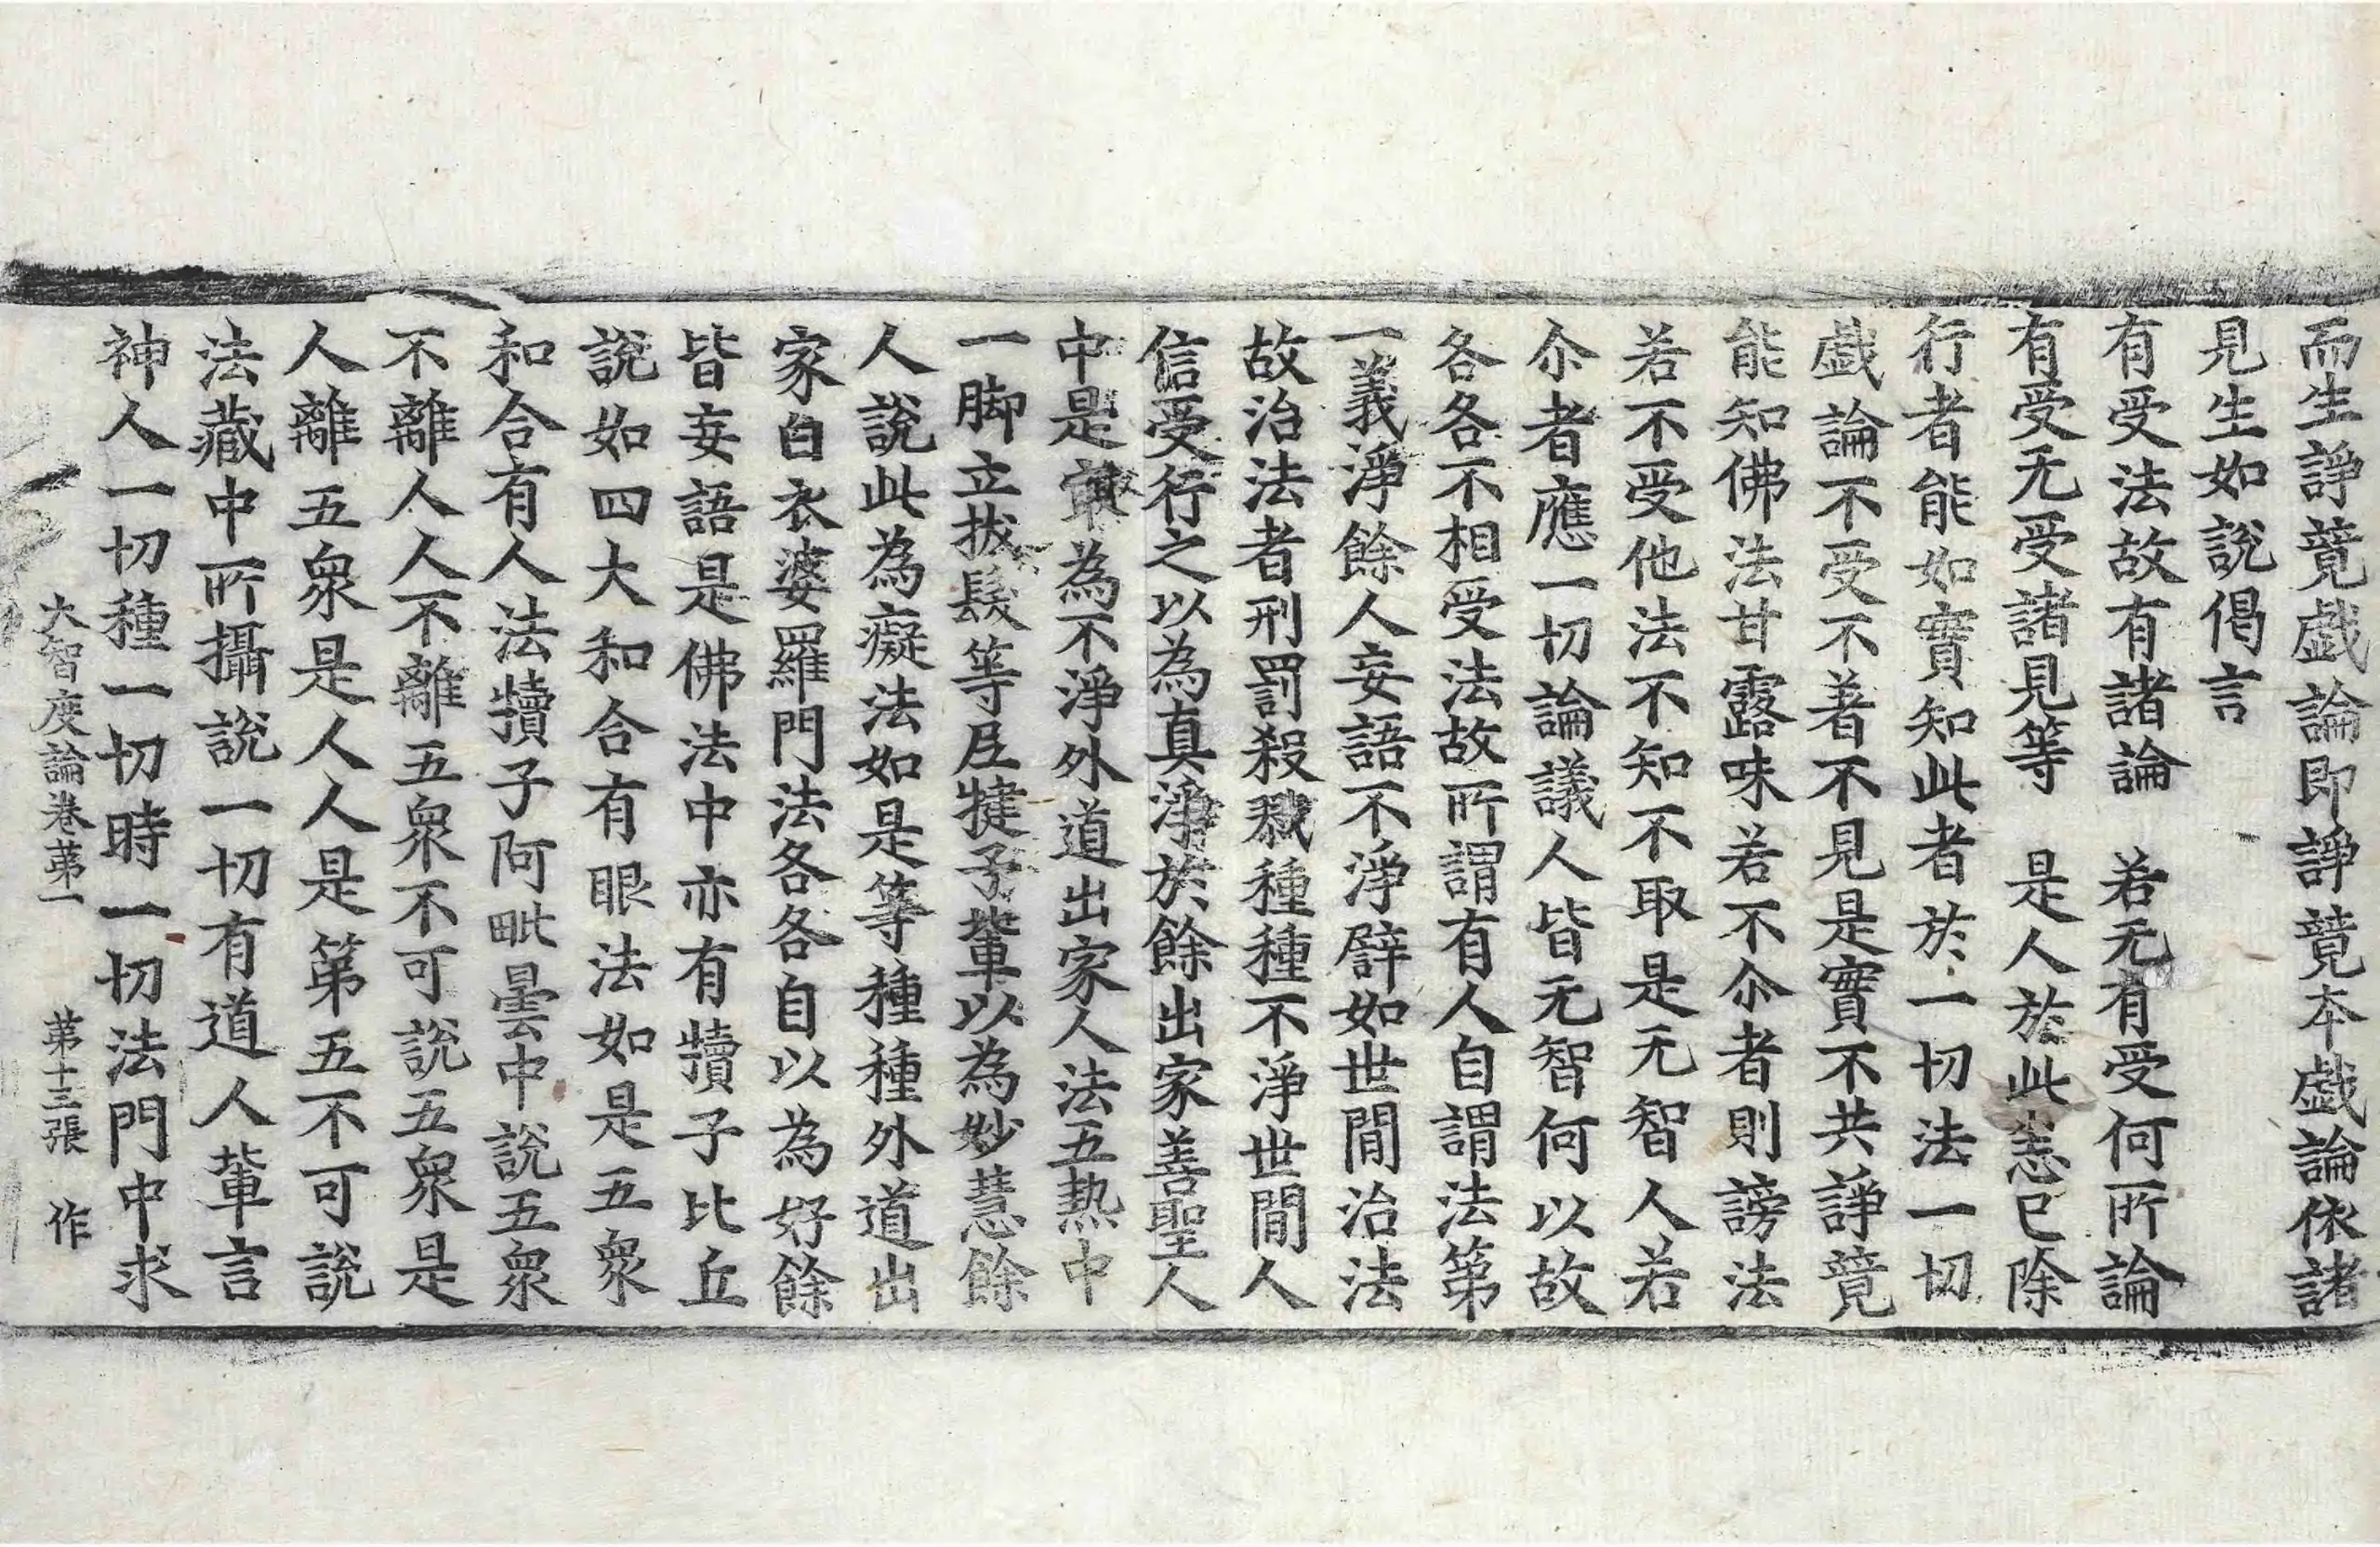 而生諍竟戱論即諍竟本戱論依諸
見生如說偈言
有受法故有諸論　若无有受何所論
有受无受諸見等　是人於此悉已除
行者能如實知此者於一切法一切
戱論不受不著不見是實不共諍竟
能知佛法甘露味若不尒者則謗法
若不受他法不知不取是无智人若
尒者應一切論議人皆无智何以故
各各不相受法故所謂有人自謂法第
一義淨餘人妄語不淨辟如世閒治法
故治法者刑罰殺戮種種不淨世閒人
信受行之以為真淨於餘出家善聖人
中是寂為不淨外道出家人法五熱中
一脚立拔髮等𡰱犍子輩以為妙慧餘
人說此為癡法如是等種種外道出
家白衣婆羅門法各各自以為好餘
皆妄語是佛法中亦有犢子比丘
說如四大和合有眼法如是五衆
和合有人法犢子阿毗曇中說五衆
不離人人不離五衆不可說五衆是
人離五衆是人人是第五不可說
法藏中所攝說一切有道人輩言
神人一切種一切時一切法門中求
大智度論卷第一　第十三張　作